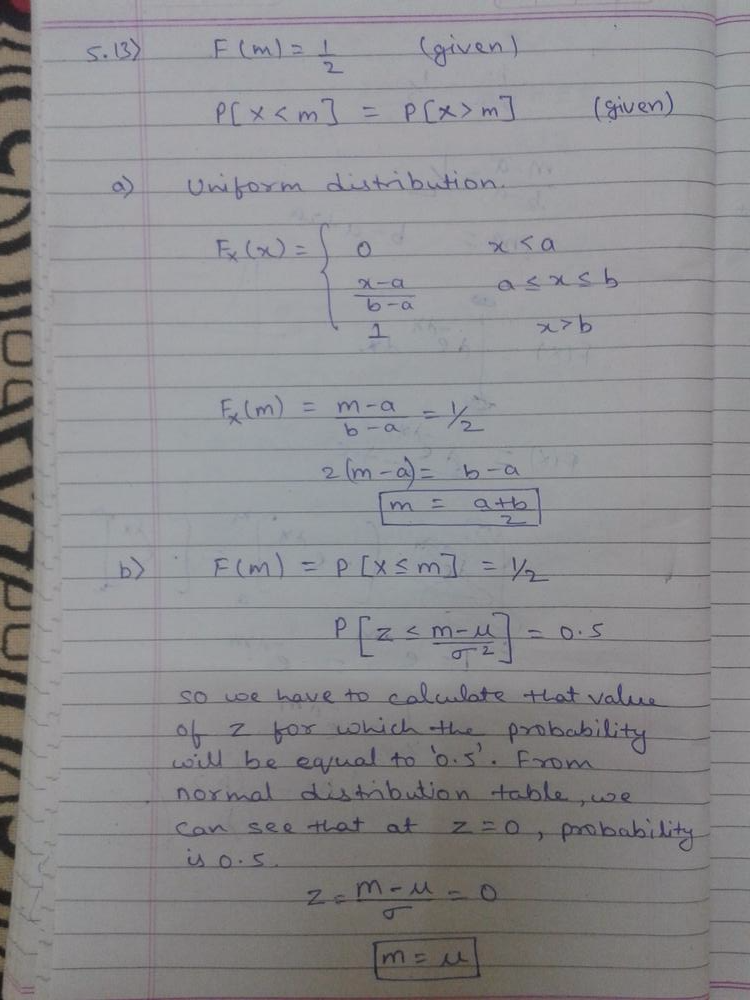 5.13) F(m) = 1/2 (given)
P[X < m] = P[X > m] (given)
a) Uniform distribution.
Fx(x) = { 0 x < a
x-a/b-a a ≤ x ≤ b
1 x > b
Fx(m) = m-a/b-a = 1/2
2(m-a) = b-a
m = a+b/2
b) F(m) = P[X ≤ m] = 1/2
P[Z < m-μ/σ²] = 0.5
so we have to calculate that value
of z for which the probability
will be equal to '0.5'. From
normal distribution table, we
can see that at z = 0, probability
is 0.5.
z = m-μ/σ = 0
m = μ